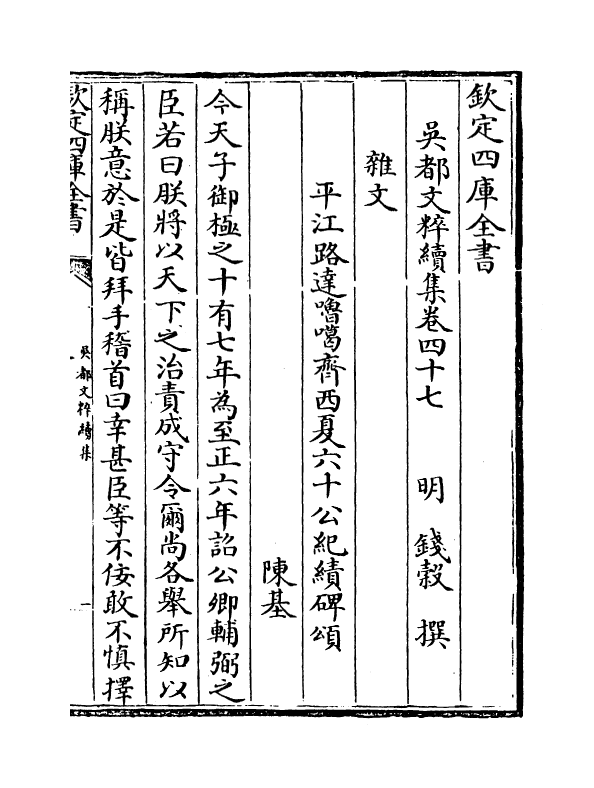 欽定四庫全書
吳都文粹續集卷四十七 明 錢穀 撰
雜文
平江路達嚕噶齊西夏六十公紀績碑頌
陳基
今天子御極之十有七年為至正六年詔公卿輔弼之
臣若曰朕將以天下之治責成守令爾尚各舉所知以
稱朕意於是皆拜手稽首曰幸甚臣等不佞敢不慎擇
欽定四庫全書
吳都文粹續集
一